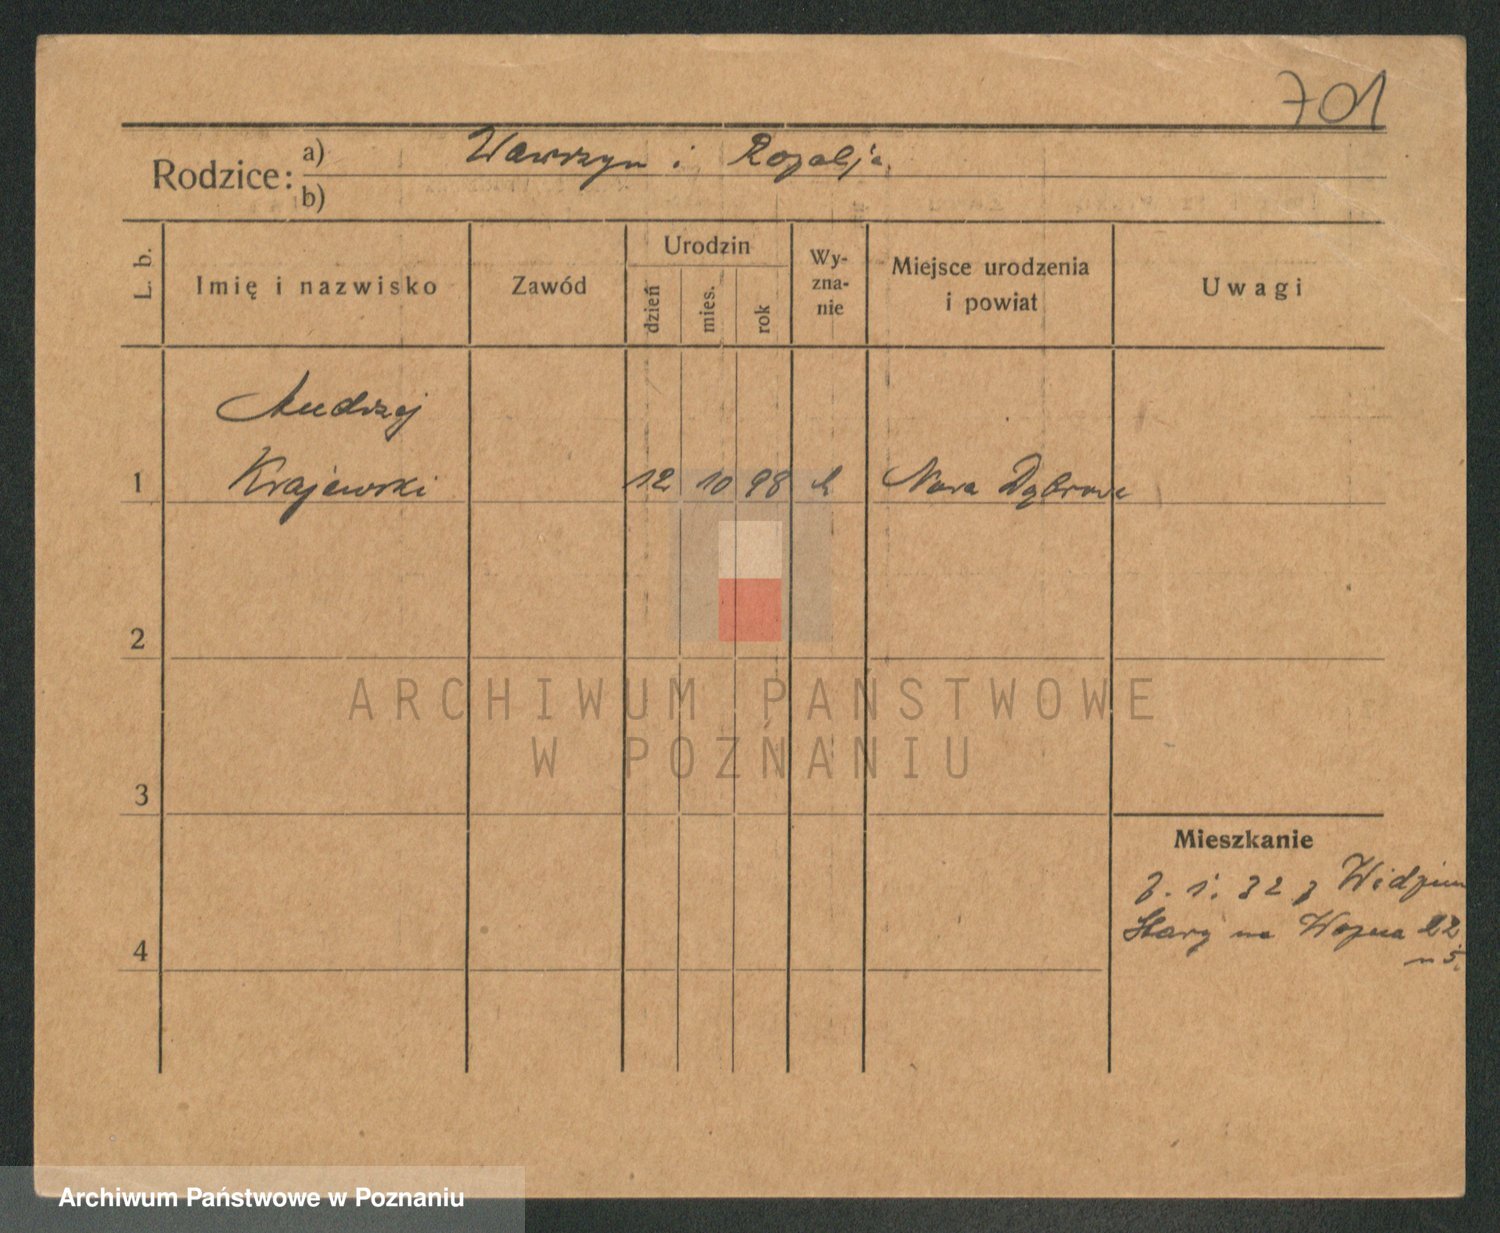 701
Rodzice: a) Wawrzyn i Rozalja
b)
L. b.
Imię i nazwisko
Zawód
Urodzin
dzień
mies.
rok
Wy-
zna-
nie
Miejsce urodzenia
i powiat
Uwagi
Andrzej
1 Krajewski 12 10 98 k Nowa Dąbrowa
2
ARCHIWUM PAŃSTWOWE
W POZNANIU
3
Mieszkanie
7. 1. 32 z Widzim
Stary na Wozna 22
m 5.
4
Archiwum Państwowe w Poznaniu